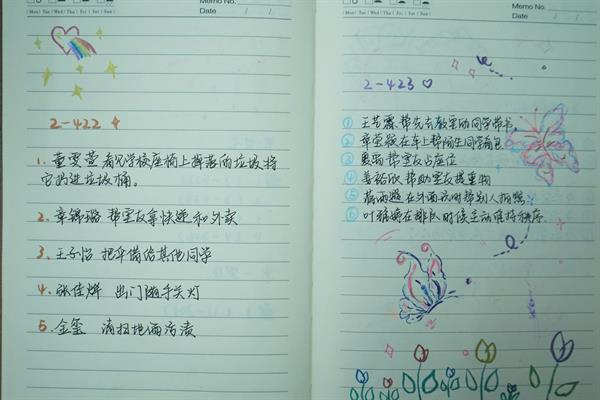 Memo No.
Mon / Tue / Wed / Thu / Fri / Sat / Sun
Date / /
2-422
1. 董雯萱 看见学校座椅上有丢的垃圾,将
它扔进垃圾桶。
2. 章锦璐 帮室友拿快递和外卖
3. 王子怡 把伞借给其他同学
4. 张佳烨 出门随手关灯
5. 金玺 清扫地面污渍
Memo No.
Mon / Tue / Wed / Thu / Fri / Sat / Sun
Date / /
2-423
① 王艺霖 帮先去教室的同学带书
② 在车上帮陌生同学背包
③ 帮室友占座位
④ 帮助室友提重物
⑤ 在外面玩时帮别人拍照
⑥ 在排队时候主动维持秩序